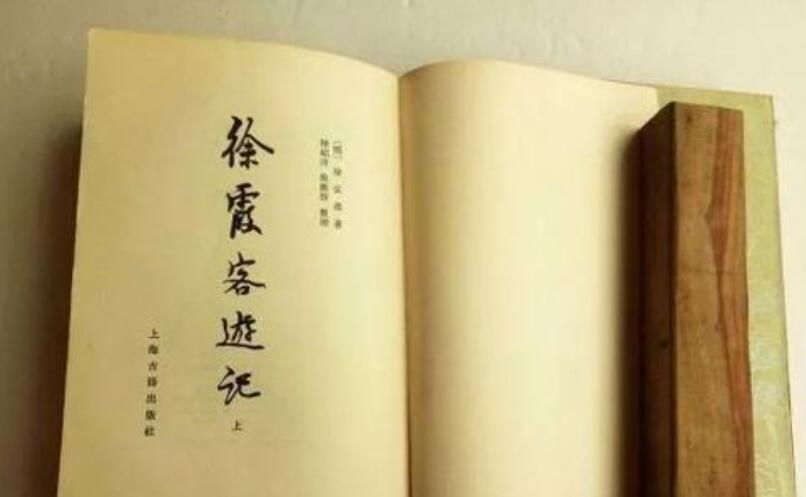 〔明〕徐弘祖著
褚紹唐 吳應壽 整理
徐霞客遊记
上
上海古籍出版社